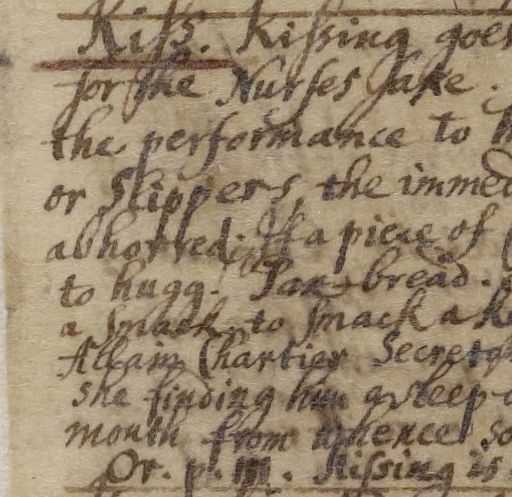 Kiſs. Kiſsing goes
for the Nurſes ſake.
the performance to
or Slippers, the immed
abhorred. If a piece of
to hugg. Pax-bread.
a ſmack. to ſmack a
Allain Chartier Secreta
she finding him asleep
mouth from whence so
Or. p. m. Kiſsing is